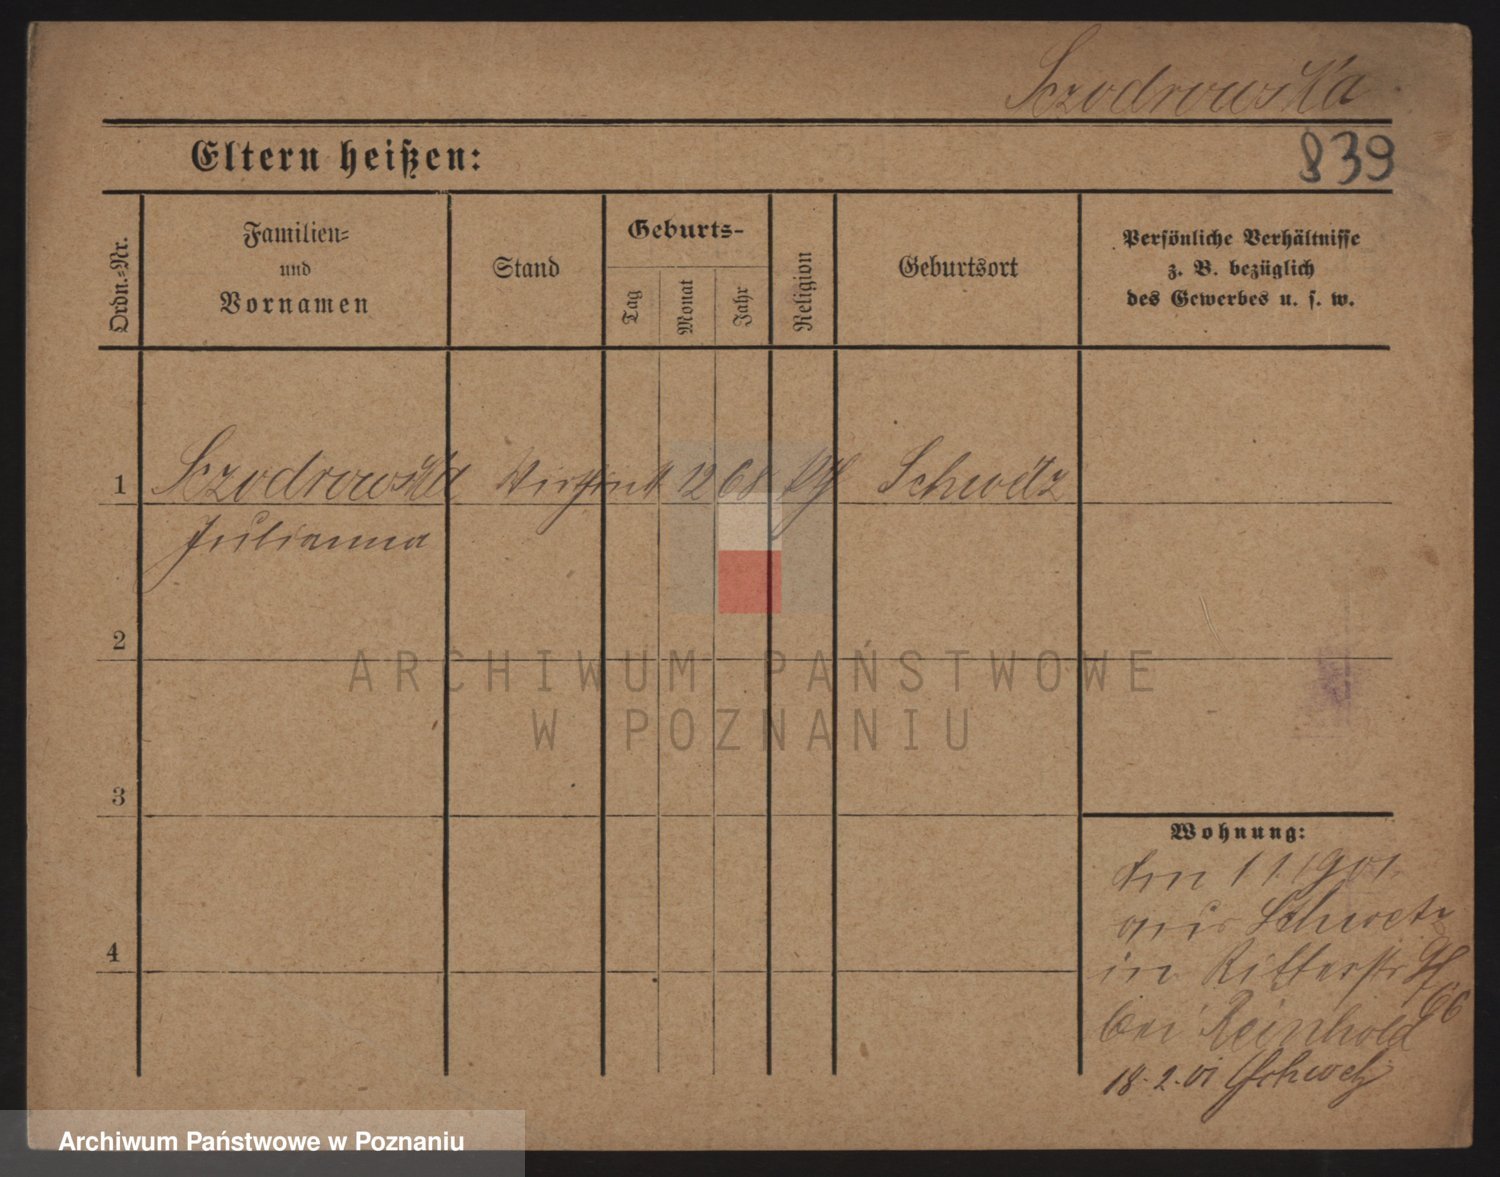 Szodrowska
Eltern heißen:
839
Ordn.-Nr.
Familien-
und
Vornamen
Stand
Geburts-
Tag
Monat
Jahr
Religion
Geburtsort
Persönliche Verhältnisse
z. B. bezüglich
des Gewerbes u. s. w.
1 Szodrowska 12 68 Schwetz
Julianna
2
3
4
ARCHIWUM PAŃSTWOWE
W POZNANIU
Wohnung:
1 1 1901
aus Schwetz
in Ritterstr
66
bei Reinhold
18. 2. 01 Schwetz
Archiwum Państwowe w Poznaniu